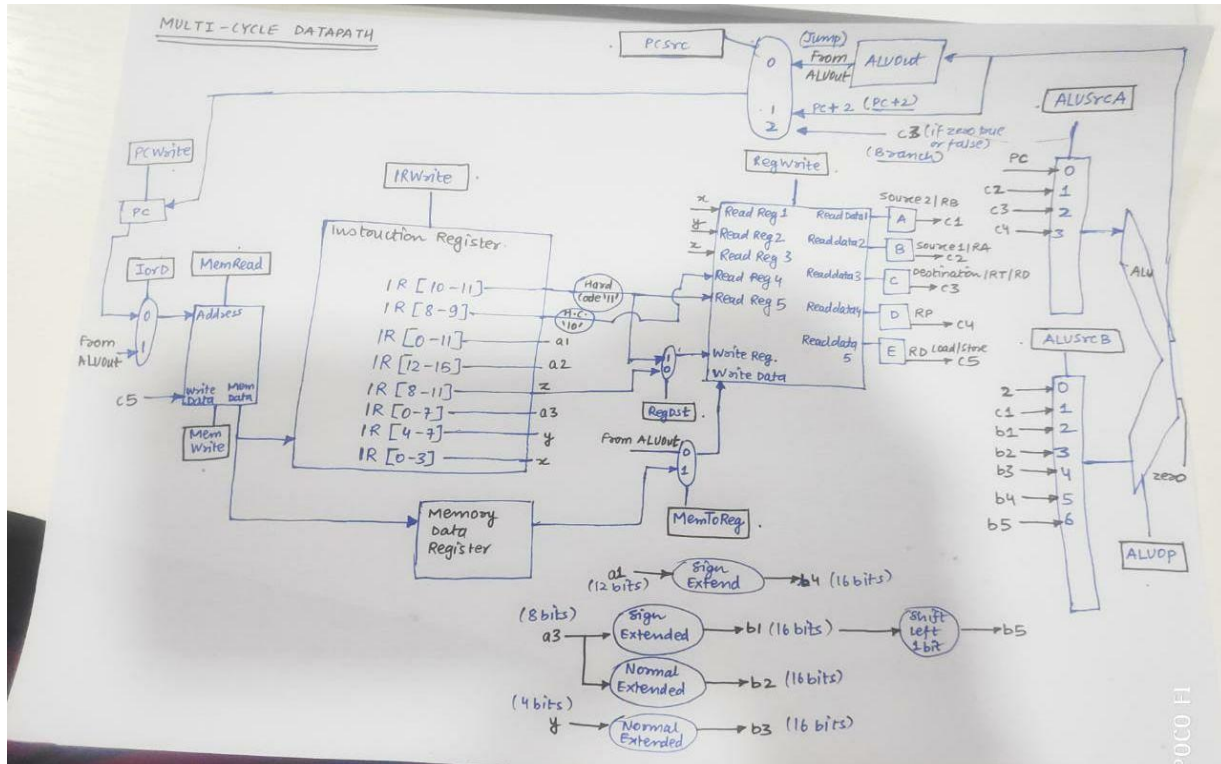 MULTI-CYCLE DATAPATH
PCSrc
0
1
2
(Jump)
From
ALUOut
ALUOut
PC+2 (PC+2)
C3 (if zero true
or false)
(Branch)
ALUSrcA
PC
C2
C3
C4
0
1
2
3
PCWrite
PC
IorD
0
1
From
ALUOut
MemRead
Address
Write
Data
Mem
Data
C5
Mem
Write
IRWrite
Instruction Register
IR [10-11]
IR [8-9]
IR [0-11] a1
IR [12-15] a2
IR [8-11] z
IR [0-7] a3
IR [4-7] y
IR [0-3] x
Hard
Code '11'
H.C.
'10'
RegWrite
x
y
z
Read Reg 1
Read Reg 2
Read Reg 3
Read Reg 4
Read Reg 5
Write Reg.
Write Data
Read Data1
Readdata2
Readdata3
Readdata4
Readdata
5
Source2/RB
A
C1
B
Source1/RA
C2
C
Destination/RT/RD
C3
D
RP
C4
E
RD Load/Store
C5
1
0
RegDst
From ALUOut
0
1
MemToReg
Memory
Data
Register
ALUSrcB
2
C1
b1
b2
b3
b4
b5
0
1
2
3
4
5
6
ALU
zero
ALUOP
a1
(12 bits)
Sign
Extend
b4 (16 bits)
(8 bits)
a3
Sign
Extended
b1 (16 bits)
Shift
Left
1 bit
b5
Normal
Extended
b2 (16 bits)
(4 bits)
y
Normal
Extended
b3 (16 bits)
POCO F1